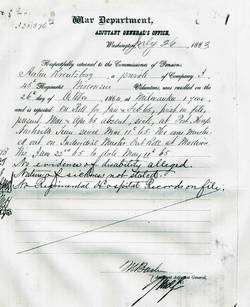 War Department,
ADJUTANT GENERAL'S OFFICE,
Washington, July 24, 1883
Respectfully returned to the Commissioner of Pensions.
a private of Company I,
45th Regiment Wisconsin Volunteers, was enrolled on the
26th day of Octo, 1864, at Milwaukee 1 year,
and is reported on Rolls for Feb 65,
present, Mar & Apr 65 absent, sick, at Post Hosp
Nashville Tenn since Mar 11" 65. He was muster-
ed out on Individual Muster Out Roll at Madison
Wis Jan 22d 65 to date May 11" 65
No evidence of disability alleged.
Nature of sickness not stated.
No Regimental Hospital Records on file.
Assistant Adjutant General.